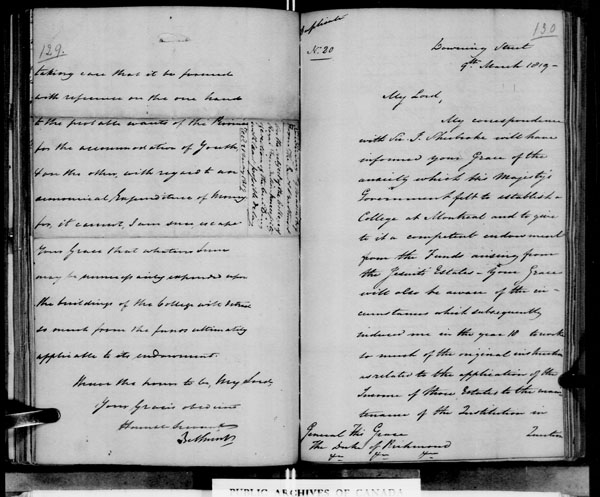 129.
taking care that it be formed
with reference on the one hand
to the probable wants of the Province
for the accommodation of Youth,
& on the other, with regard to an
economical Expenditure of Money
for, it cannot, I am sure, escape
Your Grace that whatever Sums
may be unnecessarily expended upon
the buildings of the College will
so much from the funds ultimately
applicable to its endowment.
I have the honor to be, My Lord,
Your Grace's obedient
Humble Servant
Bathurst
130
Duplicate
No. 20
Downing Street
9th March 1819-
My Lord,
My correspondence
with Sir J. Sherbrooke will have
informed your Grace of the
anxiety which His Majesty's
Government felt to establish a
College at Montreal and to give
to it a competent endowment
from the Funds arising from
the Jesuits Estates - Your Grace
will also be aware of the cir-
cumstances which subsequently
induced me in the year 18 to
so much of the original instruction
as related to the application of the
Income of those Estates to the main-
tenance of the Institution in
General His Grace
The Duke of Richmond
PUBLIC ARCHIVES OF CANADA